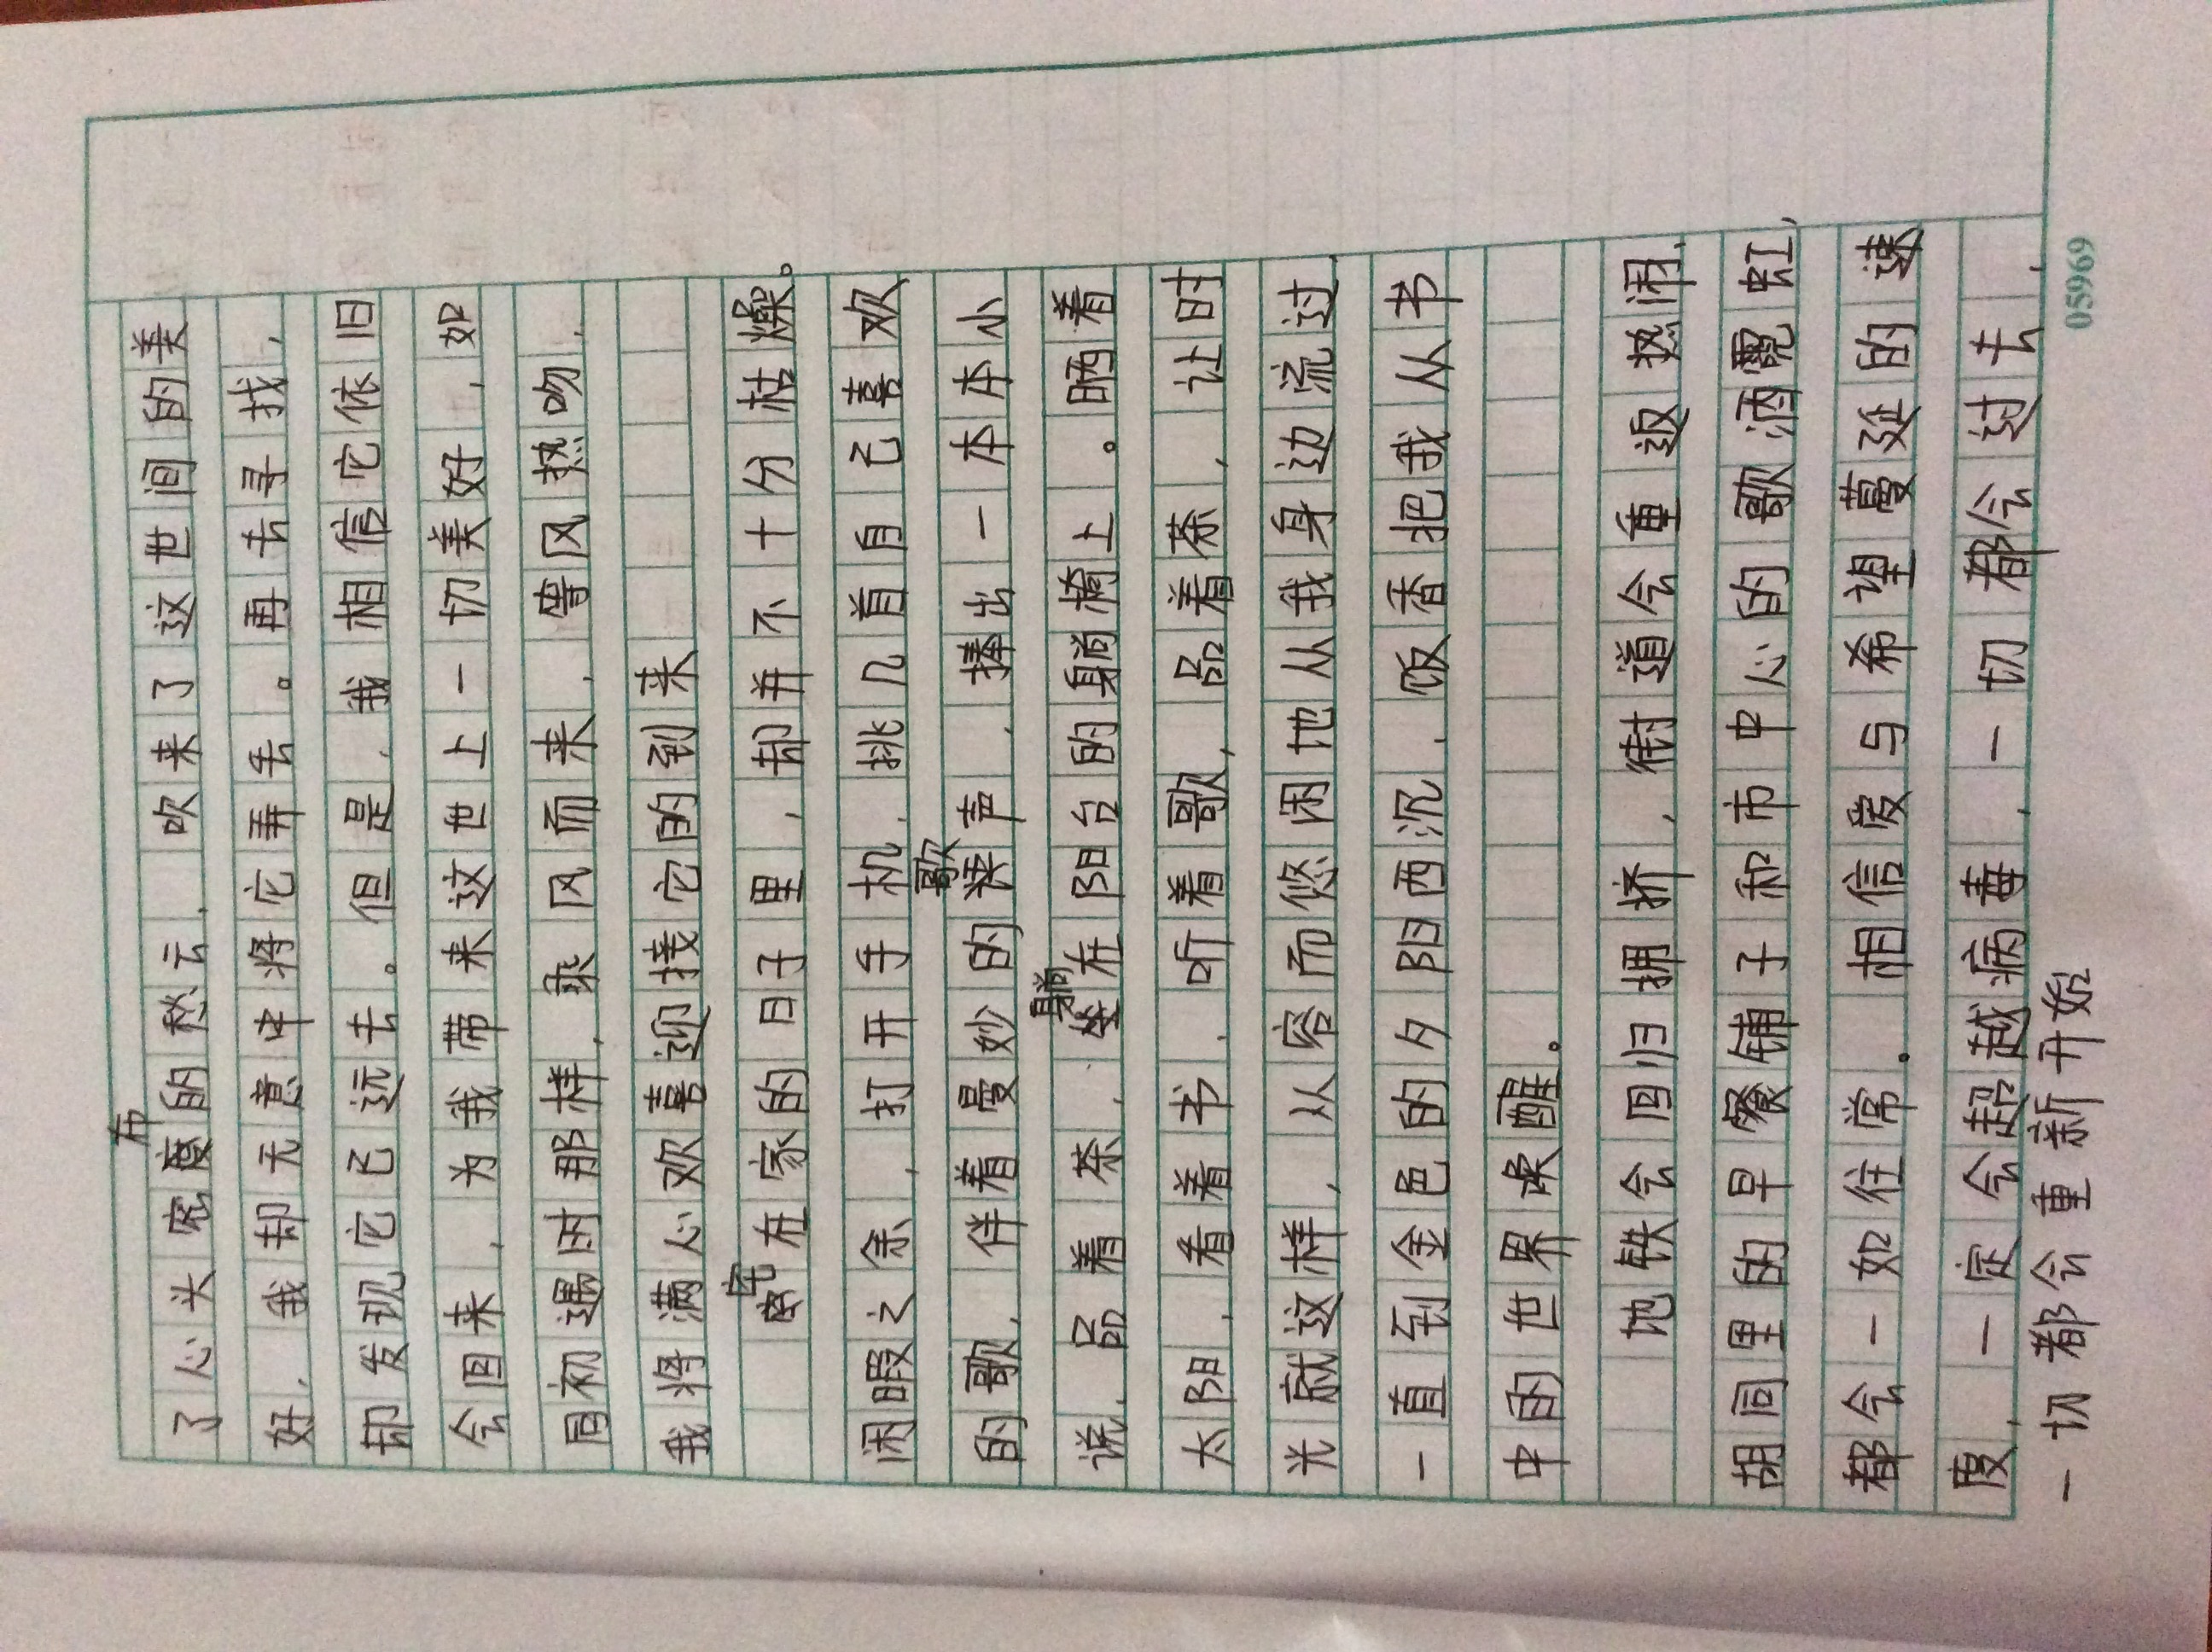 了心头密布的愁云，吹来了这世间的美
好，我却无意中将它弄丢。再去寻找，
却发现它已远去。但是，我相信它依旧
会回来，为我带来这世上一切美好，如
同初遇时那样，乘风而来，等风热吻，
我将满心欢喜迎接它的到来
宅在家的日子里，却并不十分枯燥。
闲暇之余，打开手机，挑几首自己喜欢
的歌，伴着曼妙的歌声，捧出一本本小
说，品着茶，躺在阳台的躺椅上。晒着
太阳，看着书，听着歌，品着茶，让时
光就这样，从容而悠闲地从我身边流过，
一直到金色的夕阳西沉，饭香把我从书
中的世界唤醒。
地铁会回归拥挤，街道会重返热闹，
胡同里的早餐铺子和市中心的歌酒霓虹，
都会一如往常。相信爱与希望蔓延的速
度，一定会超越病毒，一切都会过去，
一切都会重新开始
05969